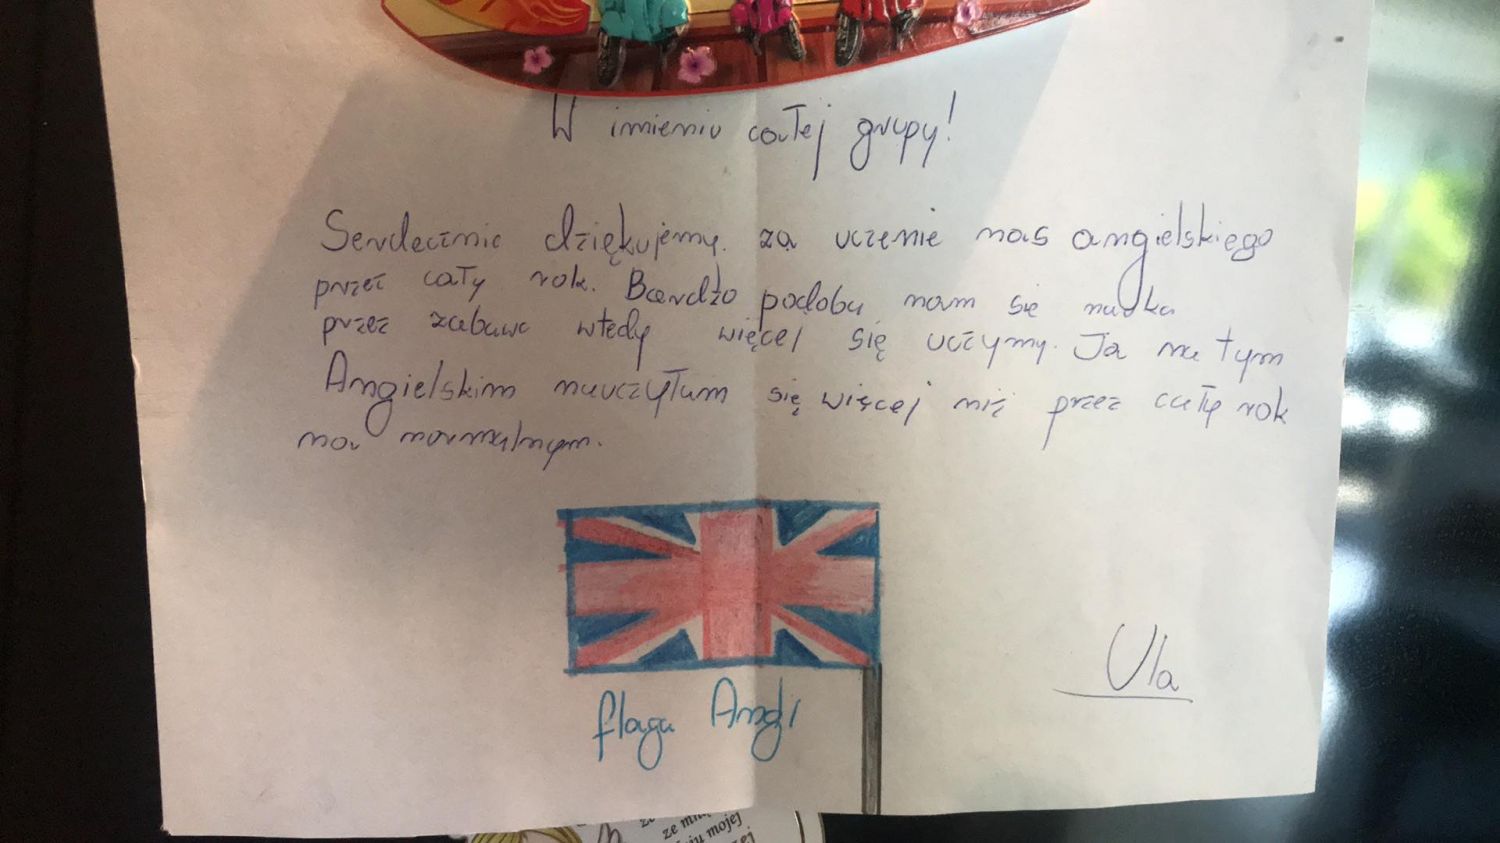 W imieniu całej grupy!
Serdecznie dziękujemy. za uczenie nas angielskiego
przez cały rok. Bardzo podobu nam się nauka
przez zabawe wtedy więcej się uczymy. Ja na tym
Angielskim nauczyłam się więcej niż przez cały rok
na normalnym.
flaga Angli
Ula
ze
mojej